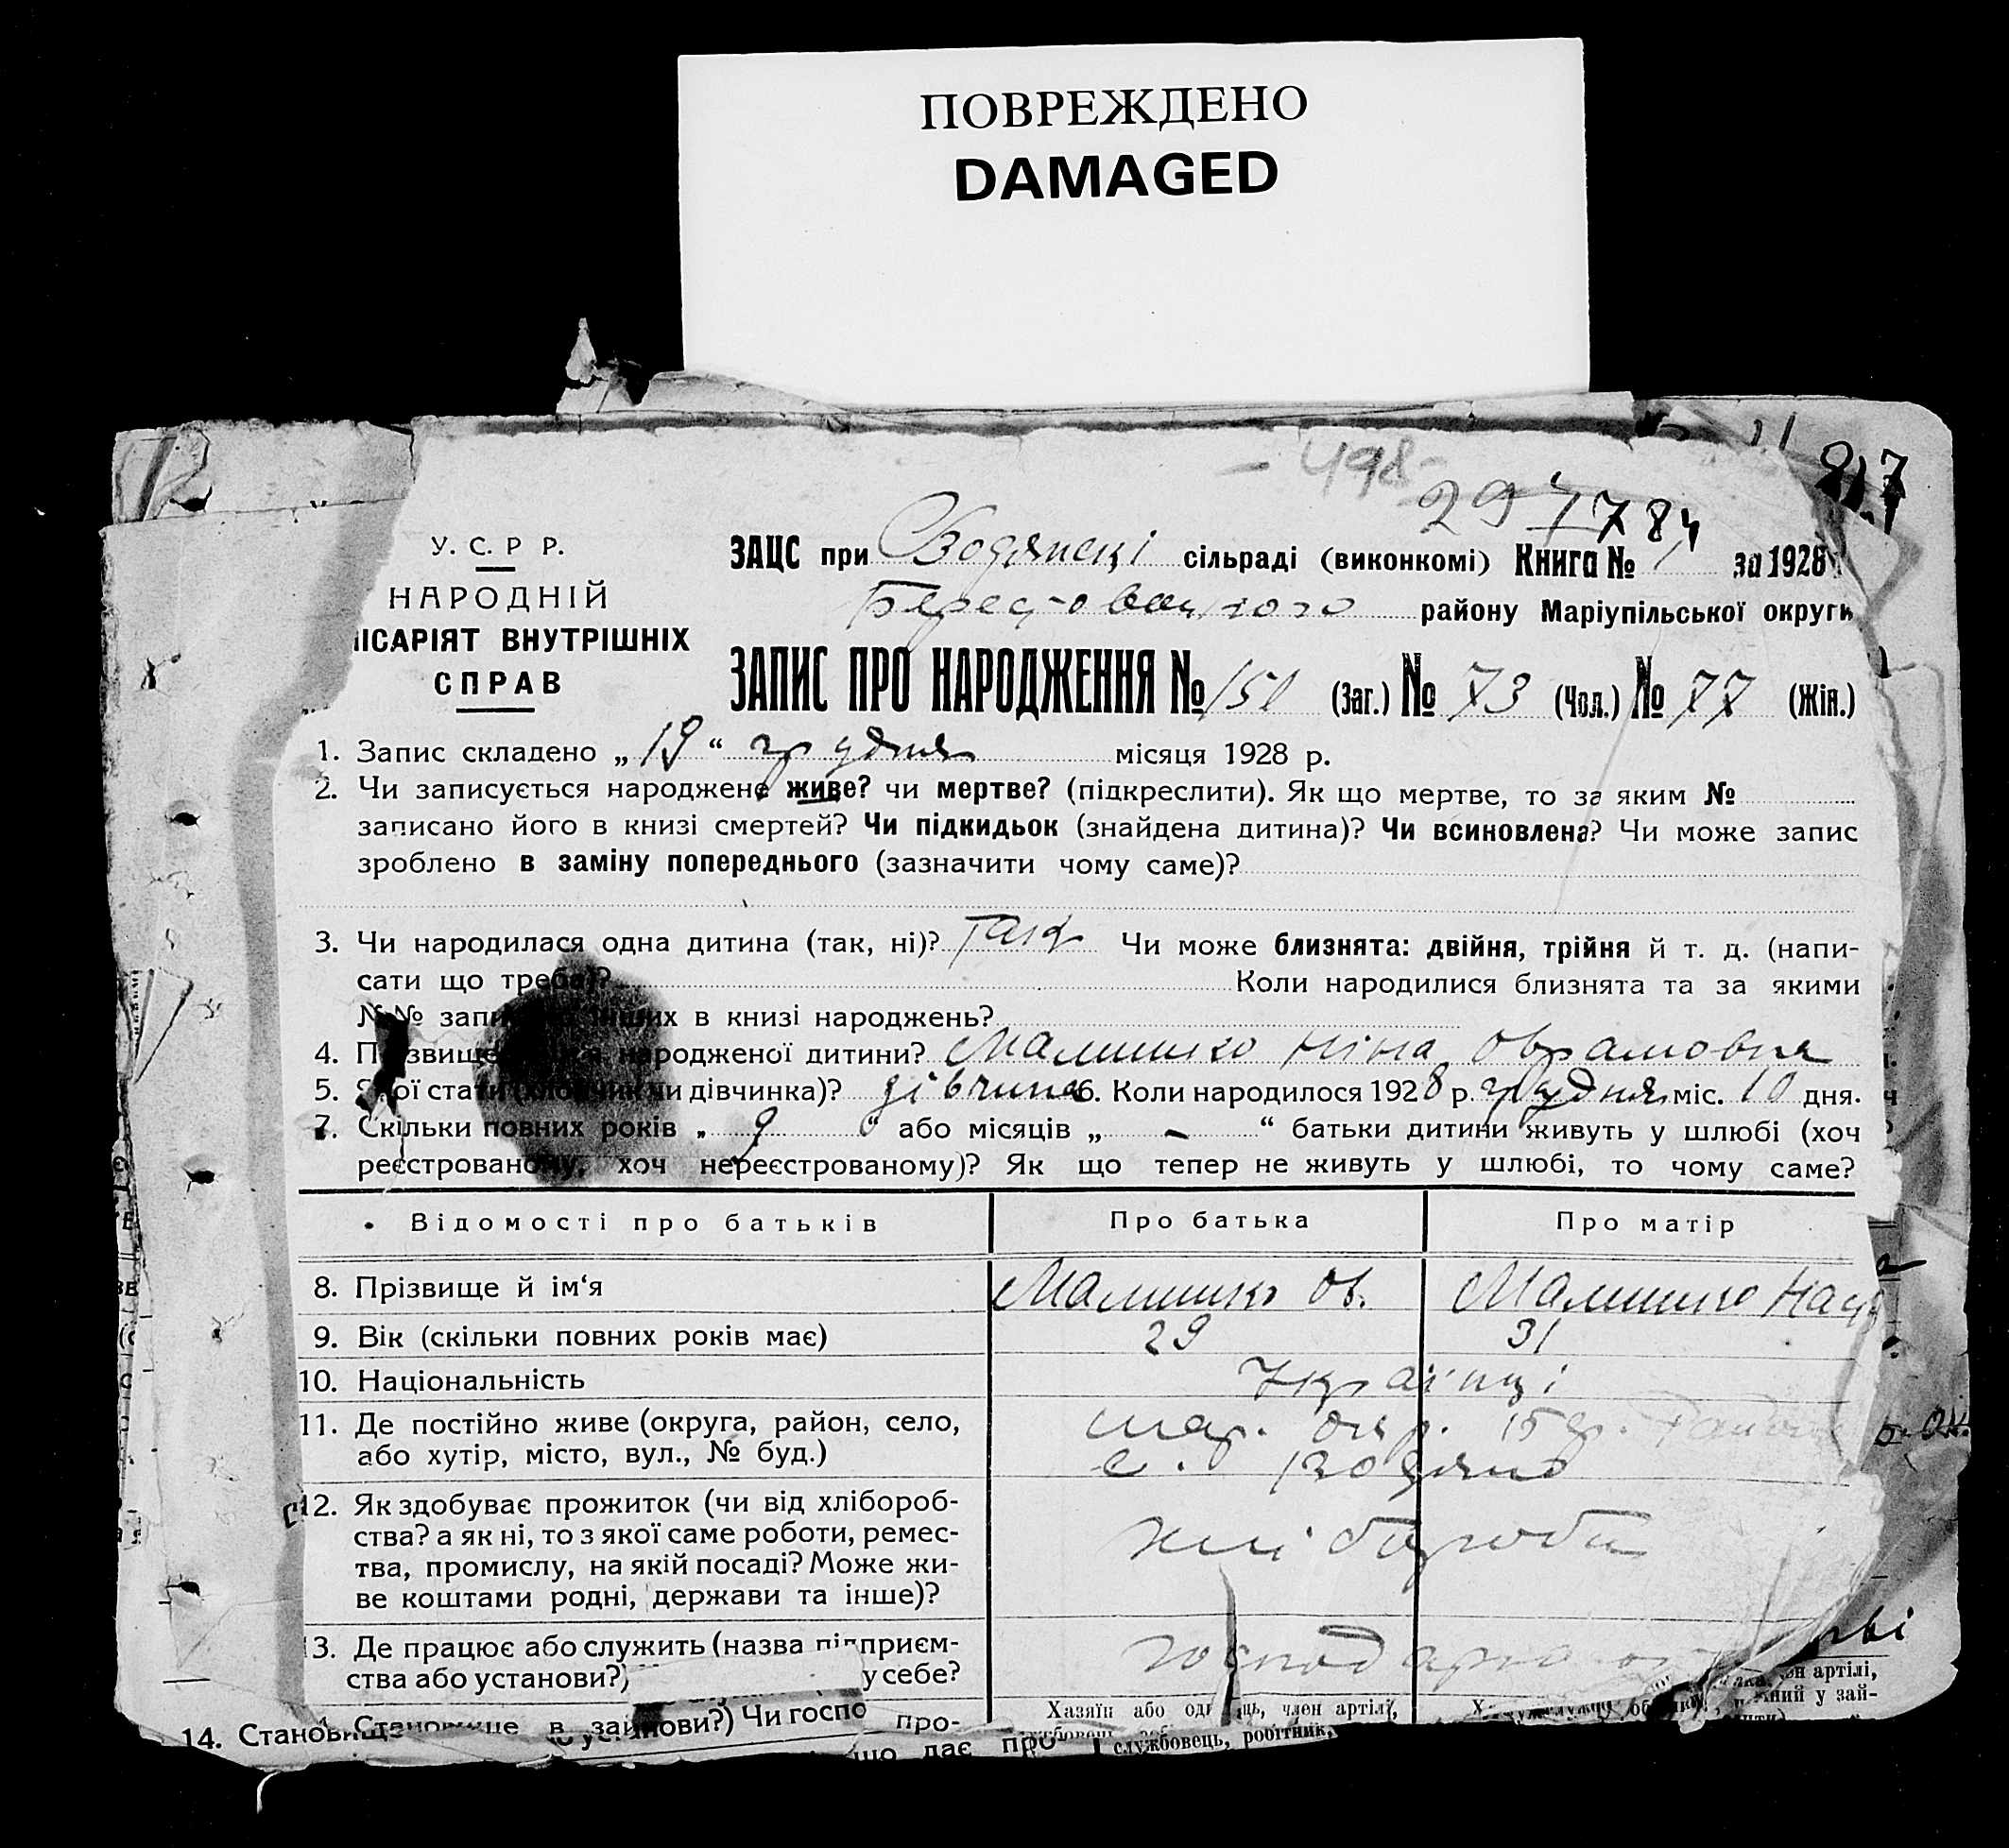 ПОВРЕЖДЕНО
DAMAGED
- 498 -
29
784
217
У. С. Р Р.
НАРОДНІЙ
ІСАРІЯТ ВНУТРІШНІХ
СПРАВ
ЗАЦС при Водянскі сільраді (виконкомі) Книга № 1 за 1928
району Маріупільської округи
ЗАПИС ПРО НАРОДЖЕННЯ № 150 (Заг.) № 73 (Чол.) № 77 (Жін.)
1. Запис складено „ 19 “ грудня місяця 1928 р.
2. Чи записується народжене живе? чи мертве? (підкреслити). Як що мертве, то за яким №
записано його в книзі смертей? Чи підкидьок (знайдена дитина)? Чи всиновлена? Чи може запис
зроблено в заміну попереднього (зазначити чому саме)?
3. Чи народилася одна дитина (так, ні)? Так Чи може близнята: двійня, трійня й т. д. (напи-
сати що треба)? Коли народилися близнята та за якими
№№ в книзі народжень?
4. народженої дитини? Малишко Ніна Оврамовна
5. статі (хлопчик чи дівчинка)? дівчина 6. Коли народилося 1928 р. грудня міс. 10 дня.
7. Скільки повних років „ 9 “ або місяців „ - “ батьки дитини живуть у шлюбі (хоч
реєстрованому, хоч нереєстрованому)? Як що тепер не живуть у шлюбі, то чому саме?
Відомості про батьків Про батька Про матір
8. Прізвище й ім‘я Малишко Ов. Малишко
9. Вік (скільки повних років має) 29 31
10. Національність Українці
11. Де постійно живе (округа, район, село, Мар. окр.
або хутір, місто, вул., № буд.) с. Водяно
12. Як здобуває прожиток (чи від хлібороб-
ства? а як ні, то з якої саме роботи, ремес-
тва, промислу, на якій посаді? Може жи-
ве коштами родні, держави та інше)?
хлібороби
13. Де працює або служить (назва підприєм-
ства або установи?) у себе?
Хазяїн або член артілі,
14. Становище в про-
нови?) Чи госпо
що дає про
службовець, робітник,